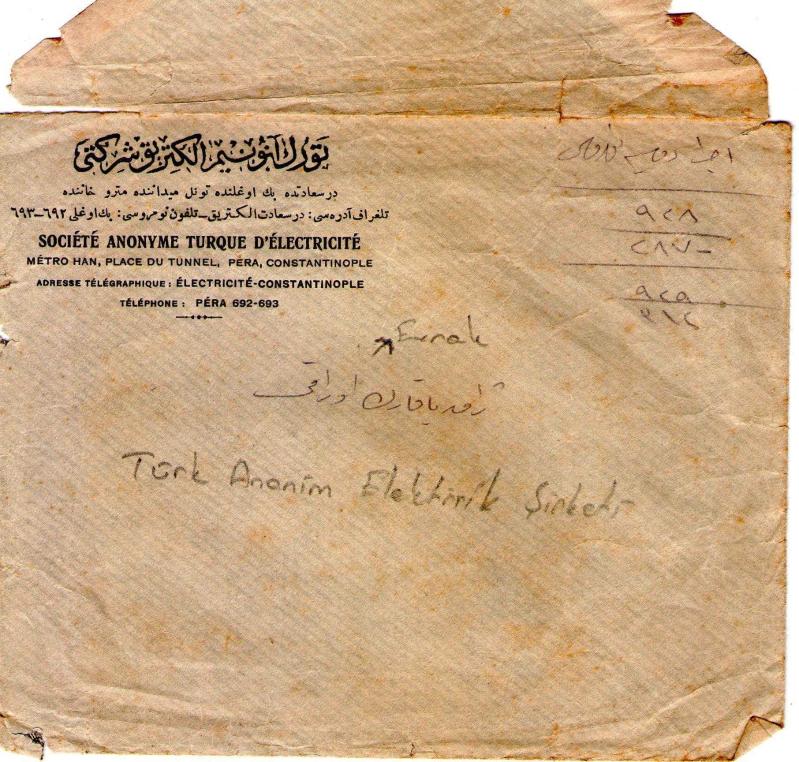 تورك آنونيم الكتريق شركتى
درسعادتده بك اوغلنده تونل ميداننده مترو خاننده
تلغراف آدره‌سى: درسعادت الكتريق_تلفون نومروسى: بك اوغلى ٦٩٢–٦٩٣
SOCIÉTÉ ANONYME TURQUE D'ÉLECTRICITÉ
MÉTRO HAN, PLACE DU TUNNEL, PÉRA, CONSTANTINOPLE
ADRESSE TÉLÉGRAPHIQUE: ÉLECTRICITÉ-CONSTANTINOPLE
TÉLÉPHONE: PÉRA 692-693
٩٢٨
٩٢٥
٣١٢
Evrak
اوراقى
Türk Anonim Elektirik Şirketi